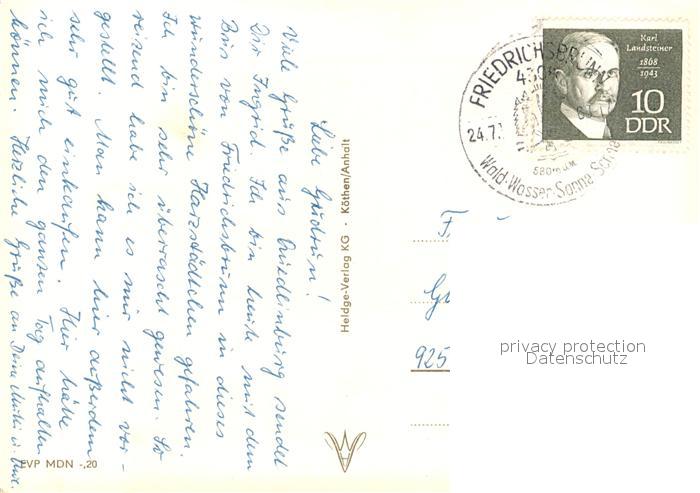 Liebe Gudrun!
Viele Grüße aus Quedlinburg sendet
Dir Ingrid. Ich bin heute mit dem
Bus von Friedrichsbrunn in dieses
wunderschöne Harzstädtchen gefahren.
Ich bin sehr überrascht gewesen. So
reizend habe ich es mir nicht vor-
gestellt. Man kann hier außerdem
sehr gut einkaufen. Hier hätte
ich mich den ganzen Tag aufhalten
können. Herzliche Grüße an Deine Mutti u.
EVP MDN -,20
Heldge-Verlag KG · Köthen/Anhalt
FRIEDRICHSBRUNN
24.7.
580m ü.M.
Wald-Wasser-Sonne
Karl
Landsteiner
1868
1943
10
DDR
F
Gu
925
privacy protection
Datenschutz